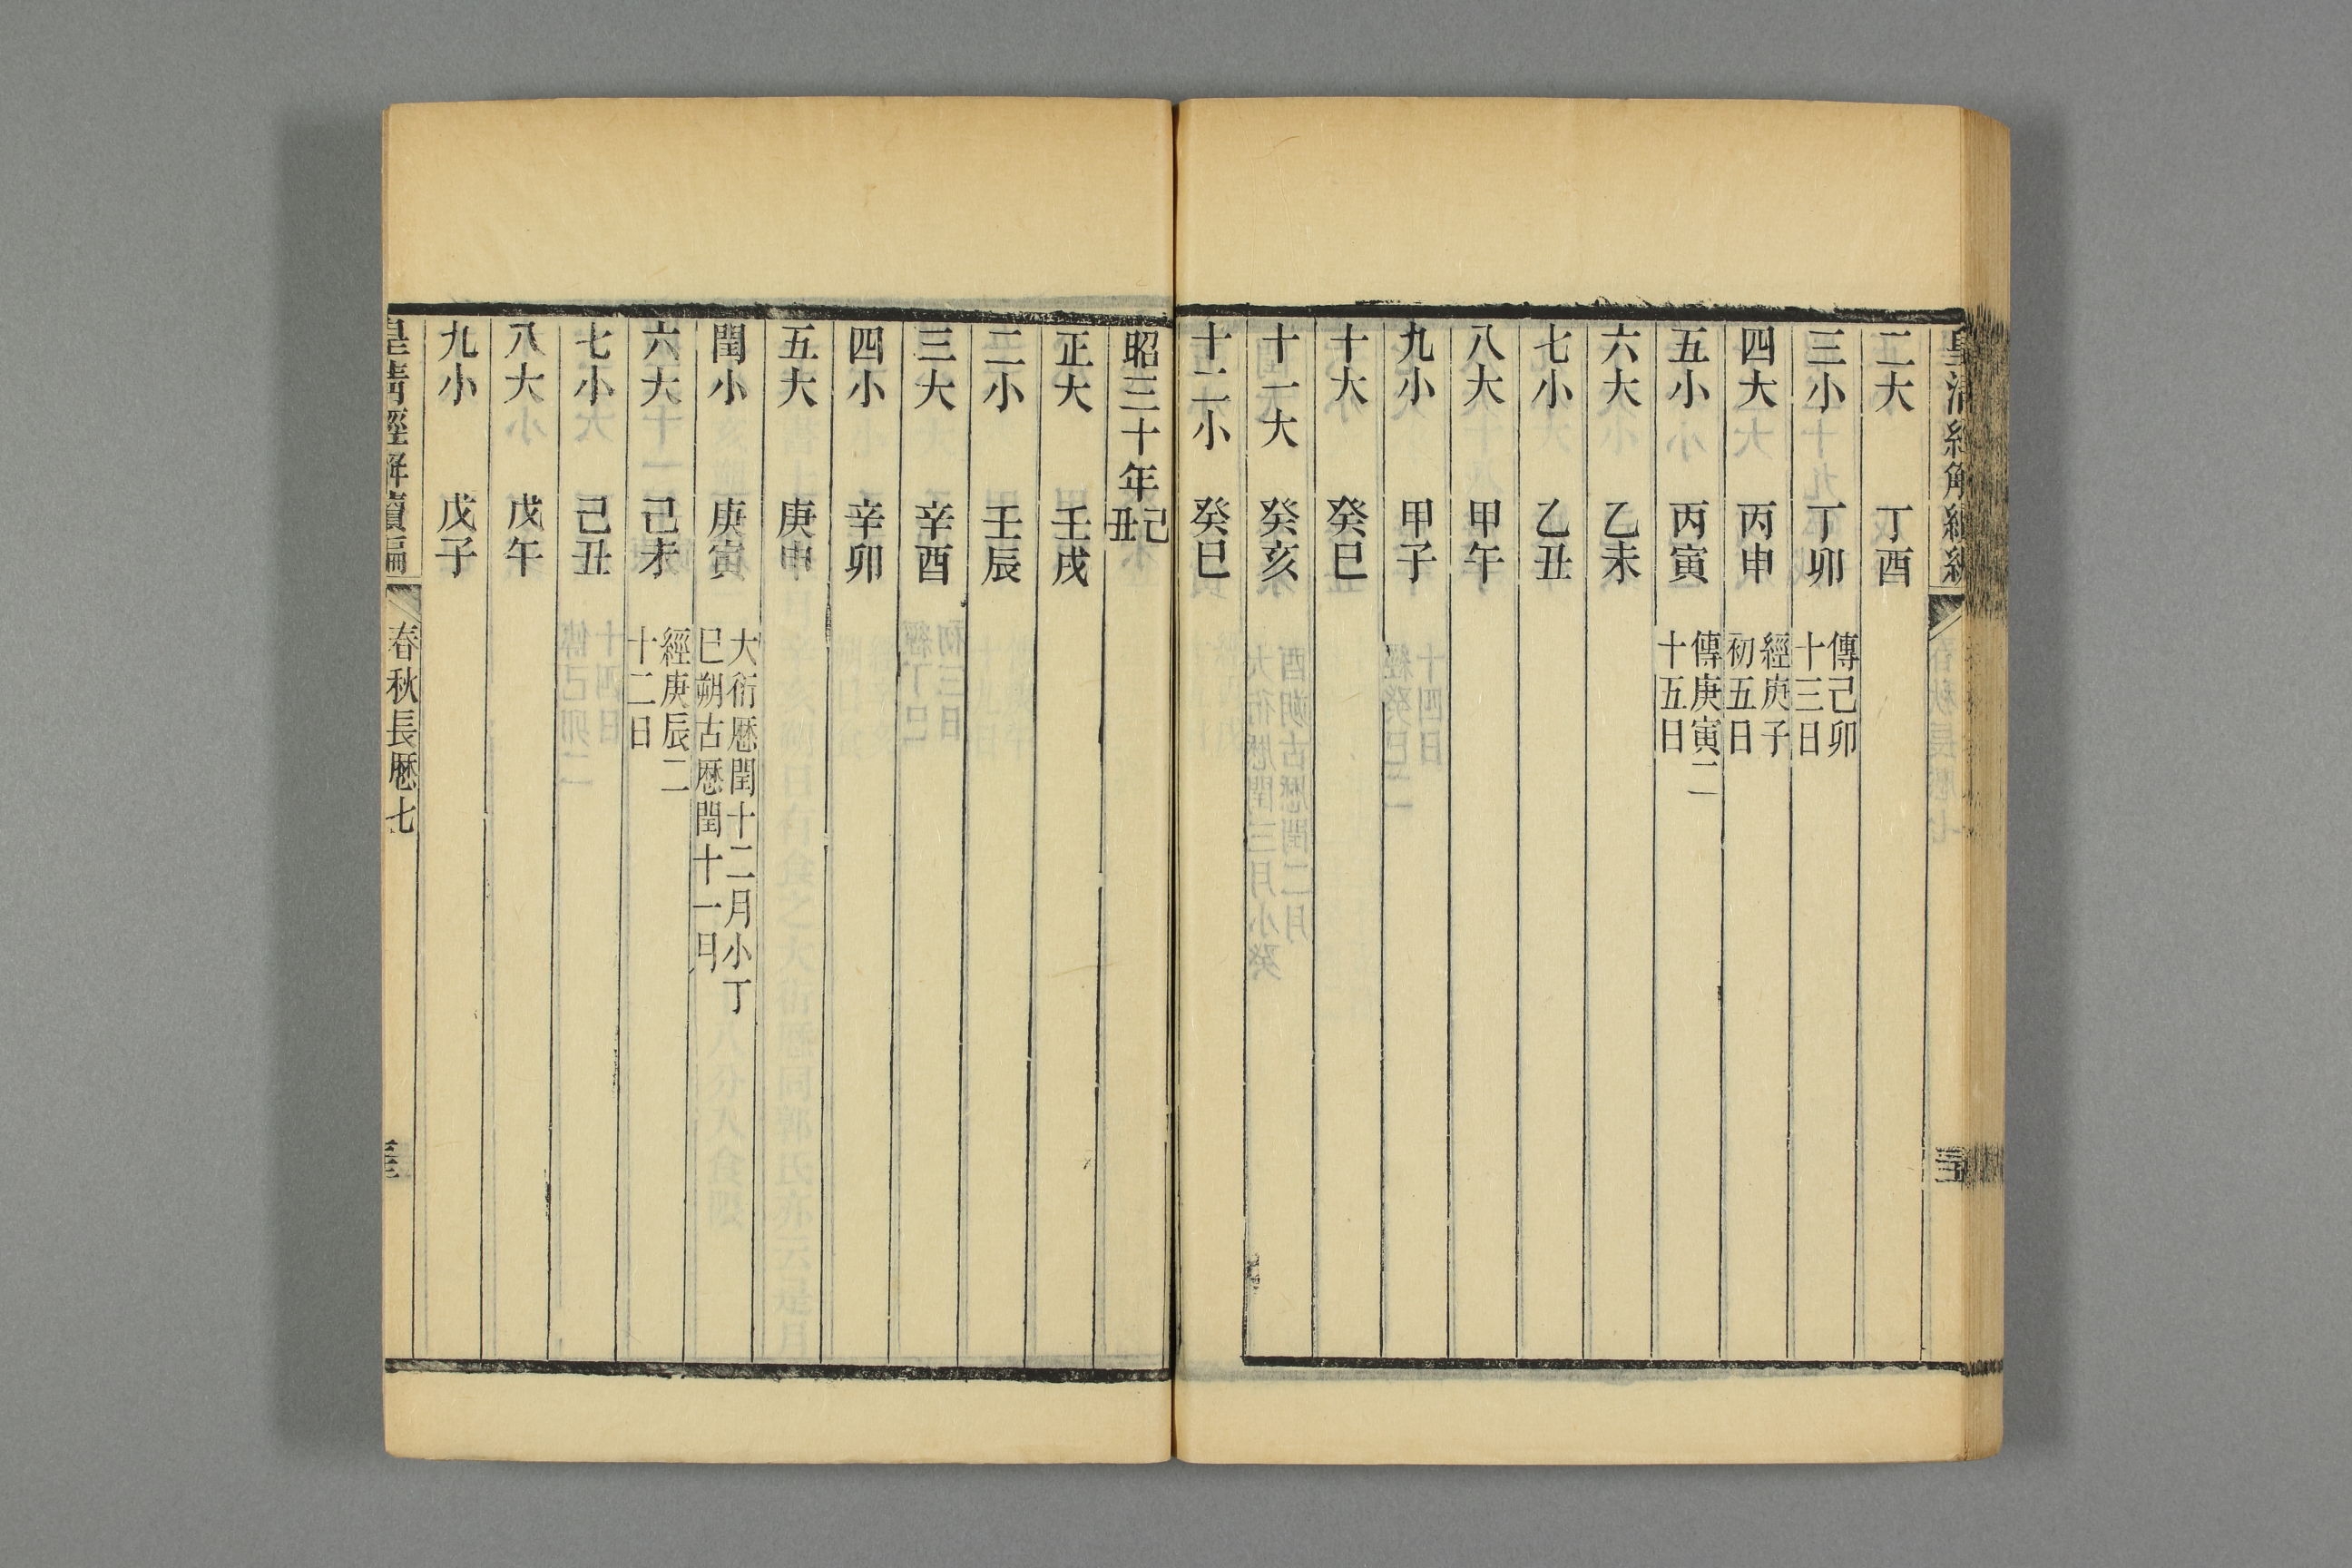 二大 丁酉
三小 丁卯 傳己卯
十三日
四大 丙申 經庚子
初五日
五小 丙寅 傳庚寅二
十五日
六大 乙未
七小 乙丑
八大 甲午
九小 甲子
十大 癸巳
十一大 癸亥
十二小 癸巳
昭三十年己丑
正大 壬戌
二小 壬辰
三大 辛酉
四小 辛卯
五大 庚申
閏小 庚寅 大衍厯閏十二月小丁
巳朔古厯閏十一月
六大 己未 經庚辰二
十二日
七小 己丑
八大 戊午
九小 戊子
皇清經解續編 春秋長厯七